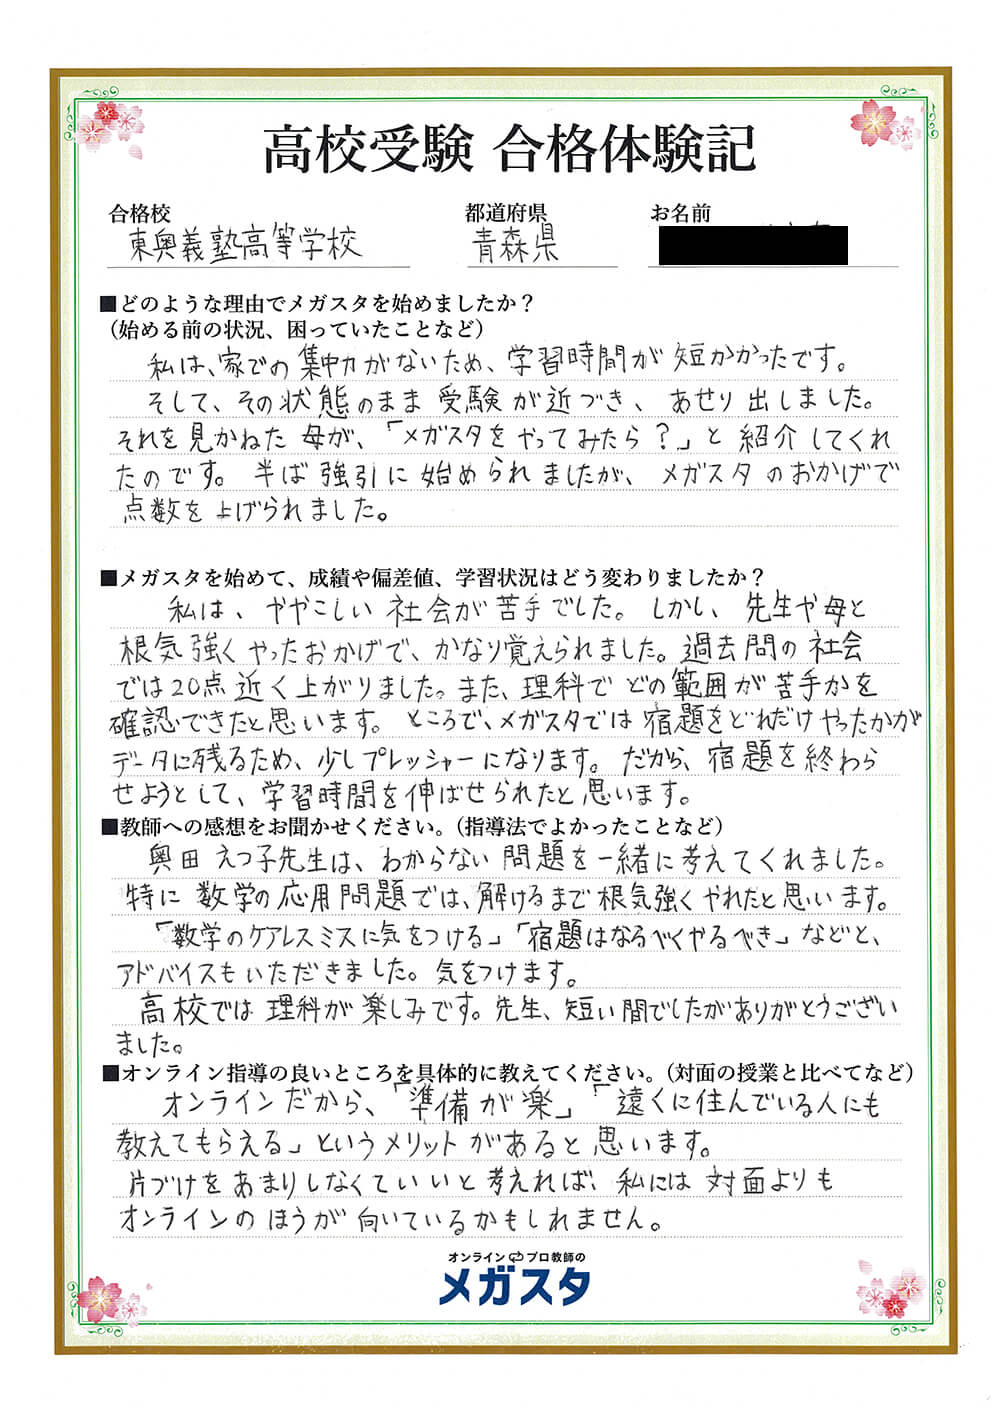 高校受験 合格体験記
合格校 都道府県 お名前
東奥義塾高等学校 青森県
■どのような理由でメガスタを始めましたか？
（始める前の状況、困っていたことなど）
私は、家での集中力がないため、学習時間が短かかったです。
そして、その状態のまま受験が近づき、あせり出しました。
それを見かねた母が、「メガスタをやってみたら？」と紹介してくれ
たのです。半ば強引に始められましたが、メガスタのおかげで
点数を上げられました。
■メガスタを始めて、成績や偏差値、学習状況はどう変わりましたか？
私は、ややこしい社会が苦手でした。しかし、先生や母と
根気強くやったおかげで、かなり覚えられました。過去問の社会
では20点近く上がりました。また、理科でどの範囲が苦手かを
確認できたと思います。ところで、メガスタでは宿題をどれだけやったかが
データに残るため、少しプレッシャーになります。だから、宿題を終わら
せようとして、学習時間を伸ばせられたと思います。
■教師への感想をお聞かせください。（指導法でよかったことなど）
奥田えつ子先生は、わからない問題を一緒に考えてくれました。
特に数学の応用問題では、解けるまで根気強くやれたと思います。
「数学のケアレスミスに気をつける」「宿題はなるべくやるべき」などと、
アドバイスもいただきました。気をつけます。
高校では理科が楽しみです。先生、短い間でしたがありがとうござい
ました。
■オンライン指導の良いところを具体的に教えてください。（対面の授業と比べてなど）
オンラインだから、「準備が楽」「遠くに住んでいる人にも
教えてもらえる」というメリットがあると思います。
片づけをあまりしなくていいと考えれば、私には対面よりも
オンラインのほうが向いているかもしれません。
オンライン プロ教師の
メガスタ